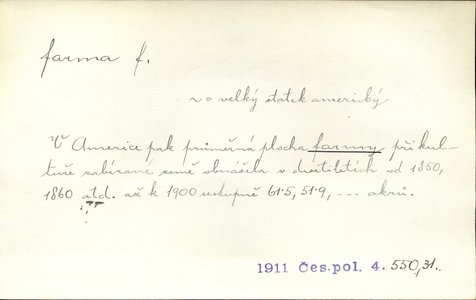 farma f.
~ = velký statek americký
V Americe pak průměrná plocha farmy při kul-
tuře zabírané země obnášela v desítiletích od 1850,
1860 atd. až k 1900 sestupně 61·5, 51·9, --- akrů.
1911 Čes.pol. 4. 550,31.